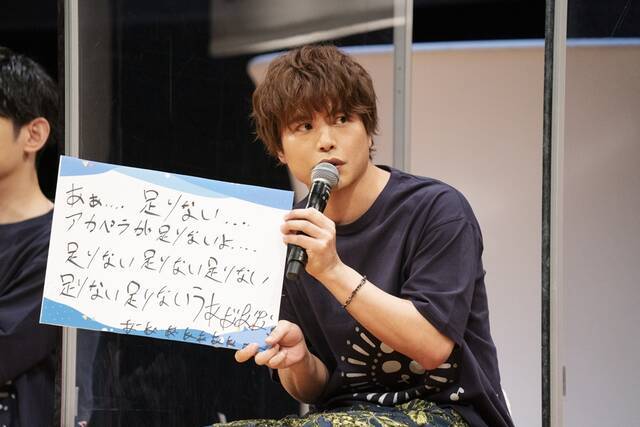 あぁ…. 足りない….
アカペラが足りないよ….
足りない 足りない 足りない
足りない 足りないうぁぁぁぁ